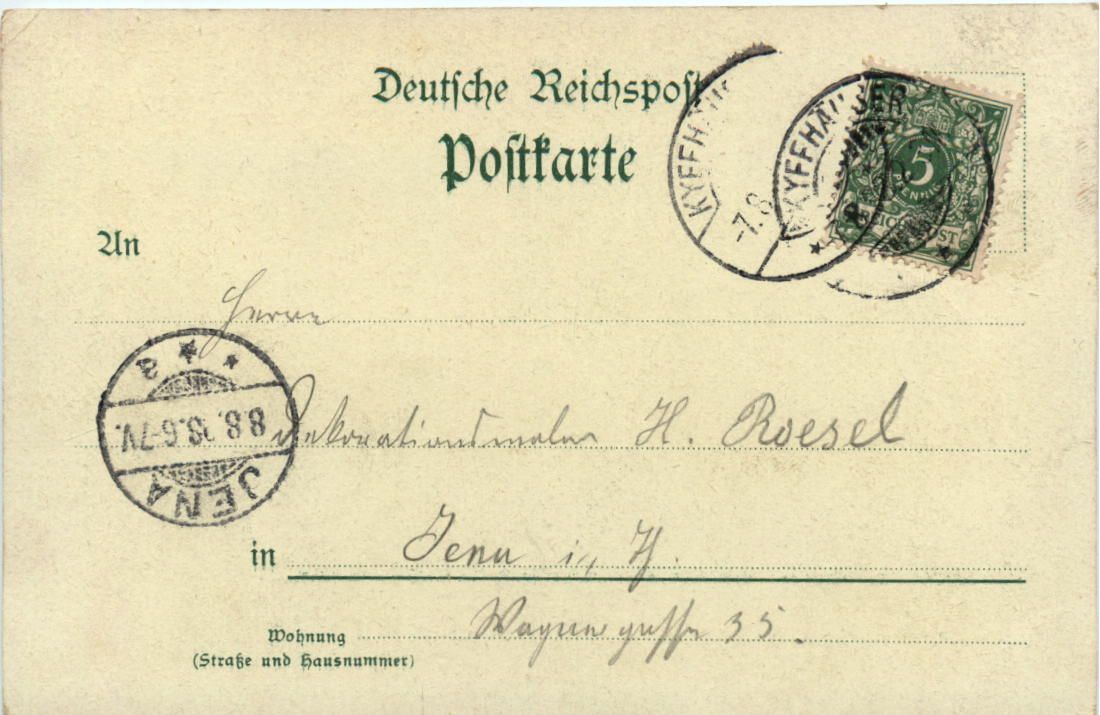 Deutsche Reichspost
Postkarte
KYFFHÄUSER
KYFFHÄUSER
-7.8
5
REICHSPOST
An
Herrn
8.8.98.6-7V.
JENA
Dekorationsmaler H. Roesel
in Jena i. Th.
Wohnung Wagnergasse 35.
(Straße und Hausnummer)